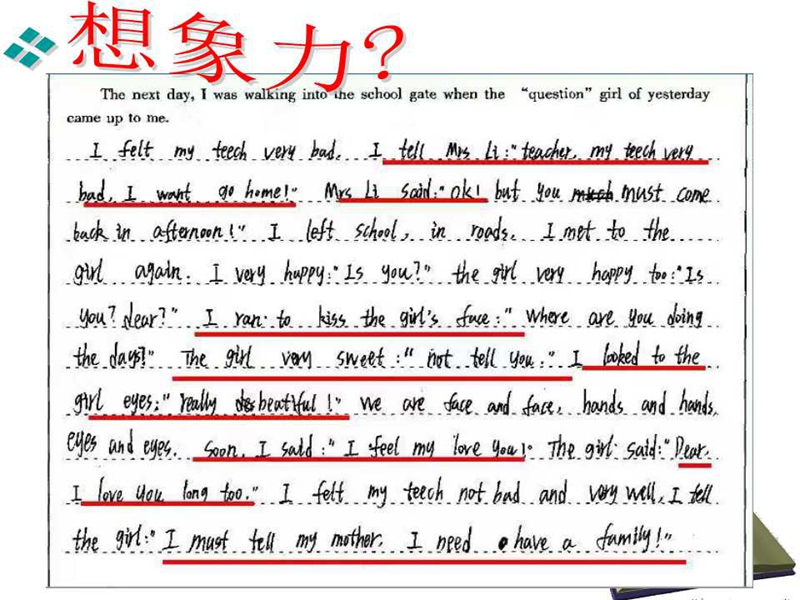 想象力?
The next day, I was walking into the school gate when the “question” girl of yesterday
came up to me.
I felt my teech very bad. I tell Mrs Li:"teacher, my teech very
bad, I want go home!" Mrs Li said:"ok! but you must come
back in afternoon!" I left school, in roads. I met to the
girl again. I very happy:"Is you?" the girl very happy too:"Is
you? dear?" I ran to kiss the girl's face:" where are you doing
the days?" The girl very sweet:" not tell you." I looked to the
girl eyes:" really beatiful!" we are face and face, hands and hands,
eyes and eyes. Soon, I said:" I feel my love you!" The girl said:"Dear.
I love you long too." I felt my teech not bad and very well, I tell
the girl:"I must tell my mother. I need have a family!"